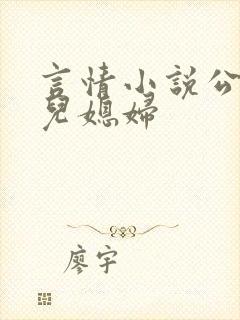 言情小說公
兒媳婦
廖宇